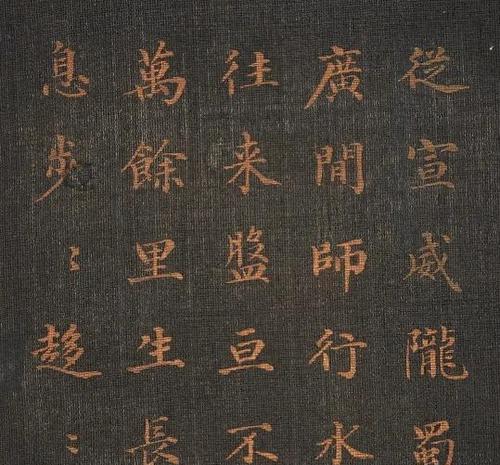 從宣威隴蜀
廣間師行水
往来盤亘不
萬餘里生長
息步〻趍〻